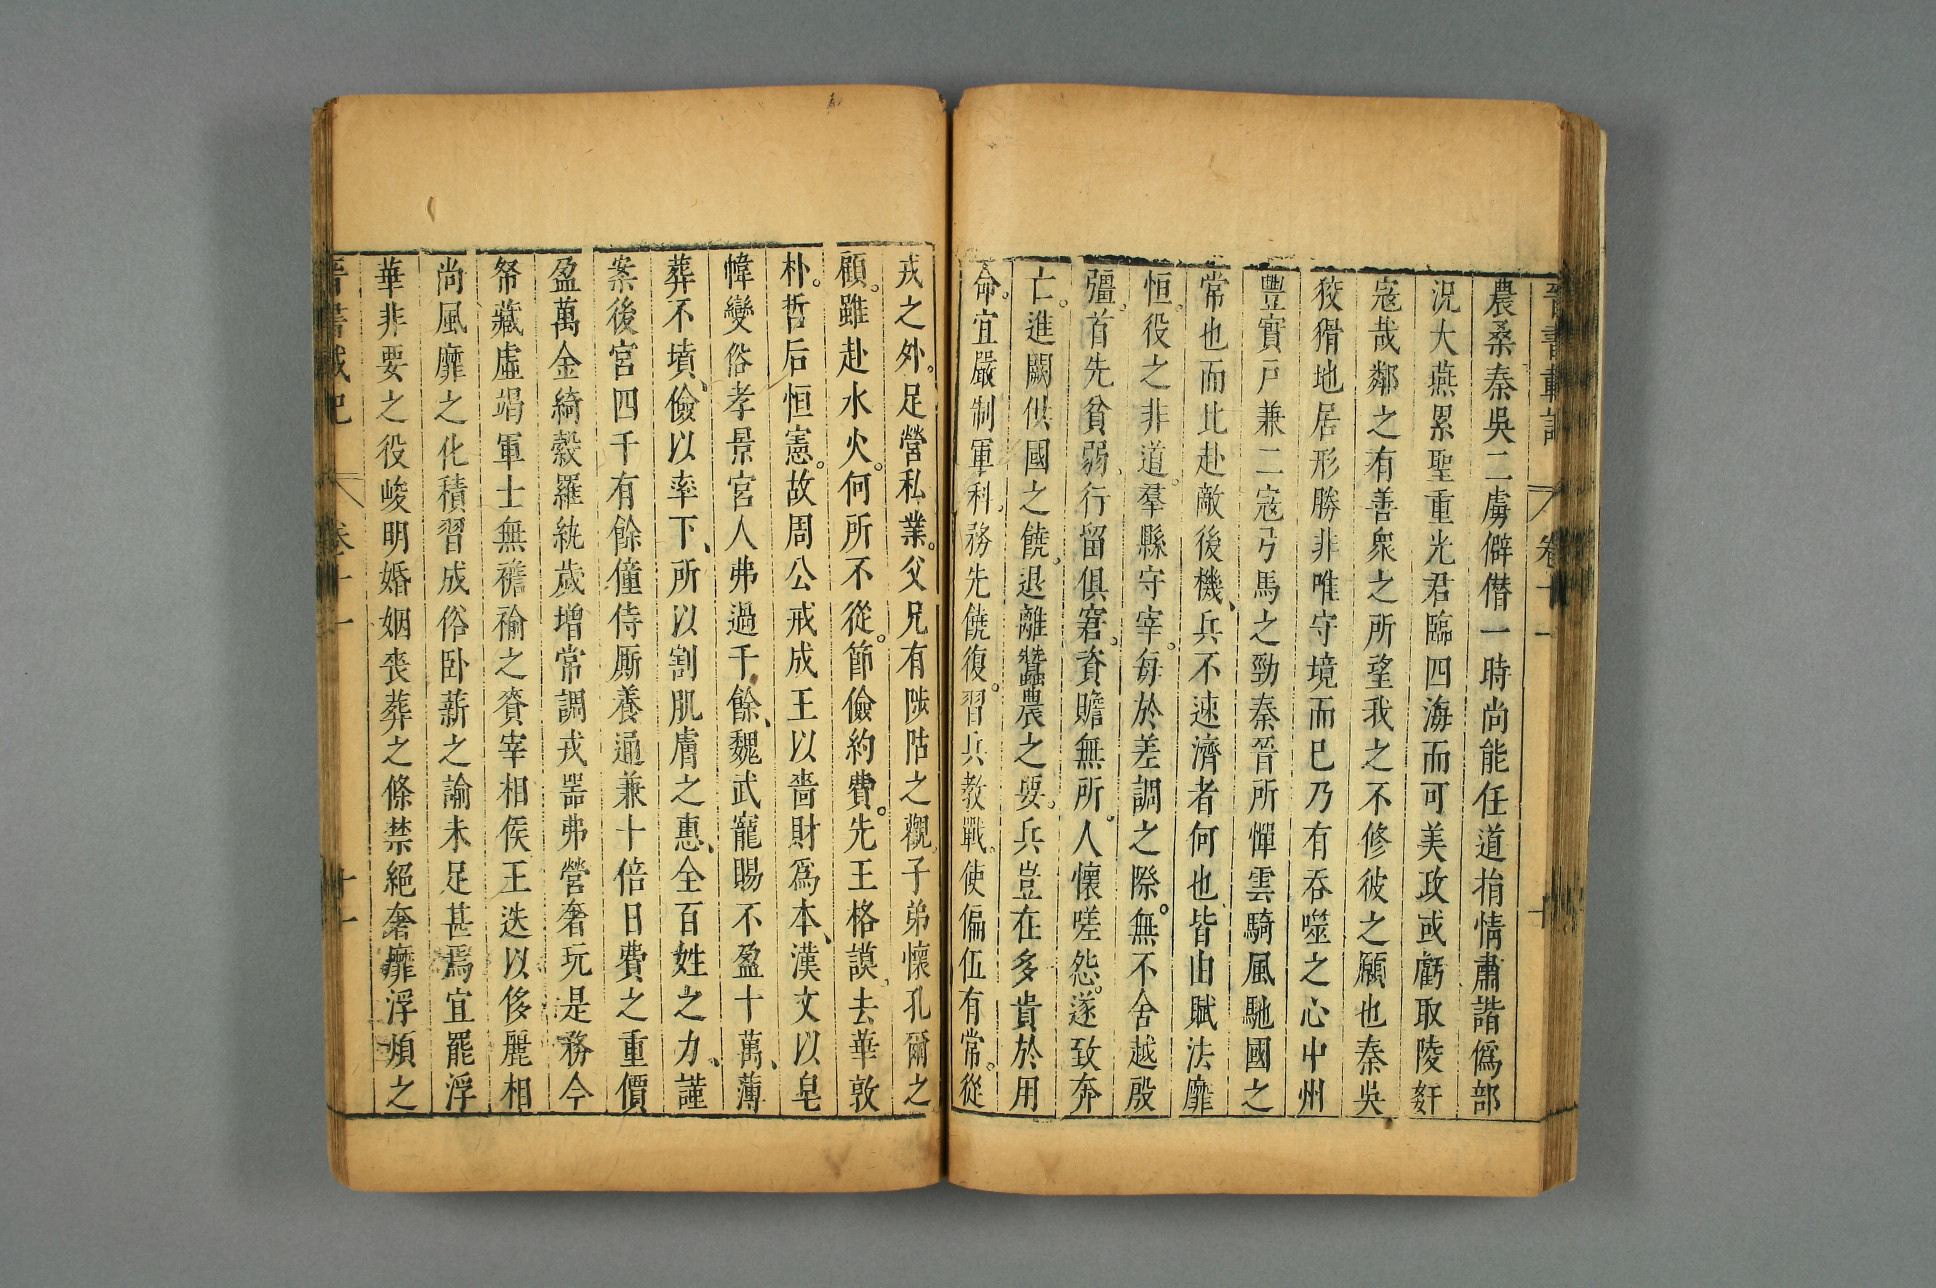 晉書載記 卷十一 十
農桑秦吳二虜僻僭一時尚能任道捐情肅諧僞部
況大燕累聖重光君臨四海而可美政或虧取陵姧
寇哉鄰之有善衆之所望我之不修彼之願也秦吳
狡猾地居形勝非唯守境而已乃有吞噬之心中州
豐實戸兼二寇弓馬之勁秦晉所憚雲騎風馳國之
常也而比赴敵後機、兵不速濟者何也皆由賦法靡
恒。役之非道。羣縣守宰。每於差調之際。無不舍越殷
彊。首先貧弱、行留俱窘。資贍無所。人懷嗟怨。遂致奔
亡。進闕供國之饒。退離蠶農之要。兵豈在多貴於用
命。宜嚴制軍科。務先饒復。習兵教戰。使偏伍有常。從
戎之外。足營私業。父兄有陟岵之觀。子弟懷孔爾之
顧。雖赴水火。何所不從。節儉約費。先王格謨、去華敦
朴。哲后恒憲。故周公戒成王以嗇財爲本、漢文以皂
幃變俗孝景宮人弗過千餘、魏武寵賜不盈十萬、薄
葬不墳、儉以率下、所以割肌膚之惠、全百姓之力、謹
案後宮四千有餘僮侍厮養通兼十倍日費之重價
盈萬金綺縠羅紈歲增常調戎器弗營奢玩是務今
帑藏虛竭軍士無襜褕之賚宰相侯王迭以侈麗相
尚風靡之化積習成俗卧薪之諭未足甚焉宜罷浮
華非要之役峻明婚姻喪葬之條禁絕奢靡浮煩之
晉書載記 卷十一 十一